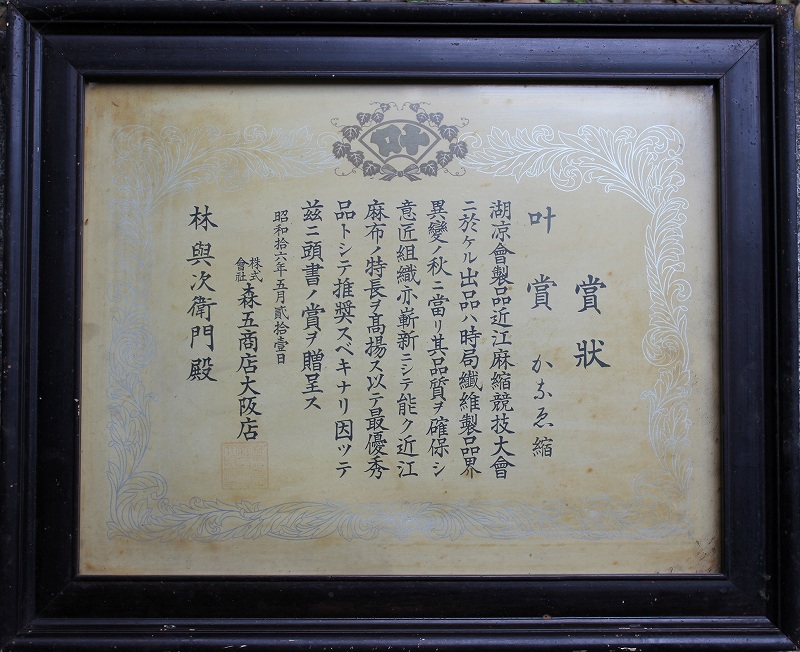 叶
賞狀
叶賞 かなゑ縮
湖凉會製品近江麻縮競技大會
ニ於ケル出品ハ時局纖維製品界
異變ノ秋ニ當リ其品質ヲ確保シ
意匠組織亦嶄新ニシテ能ク近江
麻布ノ特長ヲ髙揚ス以テ最優秀
品トシテ推奬スベキナリ因ツテ
茲ニ頭書ノ賞ヲ贈呈ス
昭和拾六年五月貳拾壹日
株式會社 森五商店大阪店
林與次衛門殿